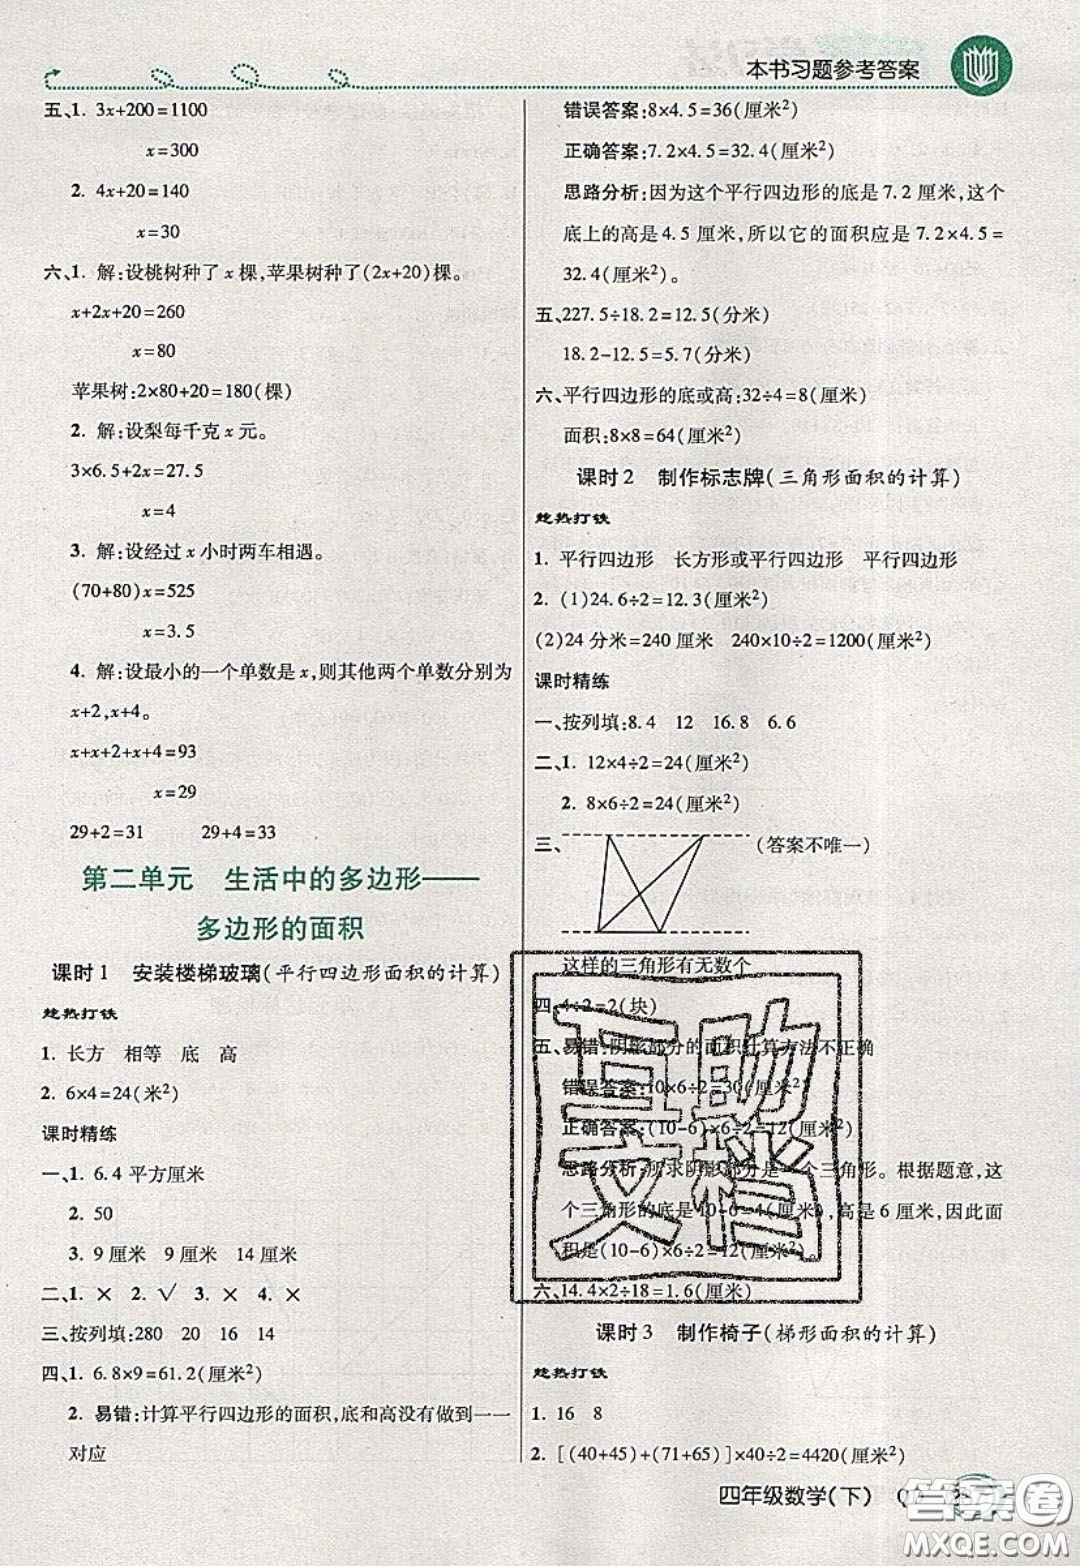 本书习题参考答案
五、1. 3x+200=1100
x=300
2. 4x+20=140
x=30
六、1. 解:设桃树种了 x 棵,苹果树种了(2x+20)棵。
x+2x+20=260
x=80
苹果树:2×80+20=180(棵)
2. 解:设梨每千克 x 元。
3×6.5+2x=27.5
x=4
3. 解:设经过 x 小时两车相遇。
(70+80)x=525
x=3.5
4. 解:设最小的一个单数是 x,则其他两个单数分别为
x+2,x+4。
x+x+2+x+4=93
x=29
29+2=31 29+4=33
第二单元 生活中的多边形——
多边形的面积
课时1 安装楼梯玻璃(平行四边形面积的计算)
趁热打铁
1. 长方 相等 底 高
2. 6×4=24(米²)
课时精练
一、1. 6.4 平方厘米
2. 50
3. 9 厘米 9 厘米 14 厘米
二、1. × 2. √ 3. × 4. ×
三、按列填:280 20 16 14
四、1. 6.8×9=61.2(厘米²)
2. 易错:计算平行四边形的面积,底和高没有做到一一
对应
错误答案:8×4.5=36(厘米²)
正确答案:7.2×4.5=32.4(厘米²)
思路分析:因为这个平行四边形的底是 7.2 厘米,这个
底上的高是 4.5 厘米,所以它的面积应是 7.2×4.5=
32.4(厘米²)。
五、227.5÷18.2=12.5(分米)
18.2-12.5=5.7(分米)
六、平行四边形的底或高:32÷4=8(厘米)
面积:8×8=64(厘米²)
课时2 制作标志牌(三角形面积的计算)
趁热打铁
1. 平行四边形 长方形或平行四边形 平行四边形
2. (1)24.6÷2=12.3(厘米²)
(2)24 分米=240 厘米 240×10÷2=1200(厘米²)
课时精练
一、按列填:8.4 12 16.8 6.6
二、1. 12×4÷2=24(厘米²)
2. 8×6÷2=24(厘米²)
三、(答案不唯一)
这样的三角形有无数个
四、4÷2=2(块)
五、易错:阴影部分的面积计算方法不正确
错误答案:10×6÷2=30(厘米²)
正确答案:(10-6)×6÷2=12(厘米²)
思路分析:所求阴影部分是一个三角形。根据题意,这
个三角形的底是10-6=4(厘米),高是 6 厘米,因此面
积是(10-6)×6÷2=12(厘米²)。
六、14.4×2÷18=1.6(厘米)
课时3 制作椅子(梯形面积的计算)
趁热打铁
1. 16 8
2. [(40+45)+(71+65)]×40÷2=4420(厘米²)
四年级数学(下)
互助
文档
答案卷
MXQE.COM